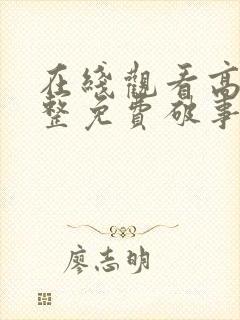 在綫觀看高
整免費破事
廖志明